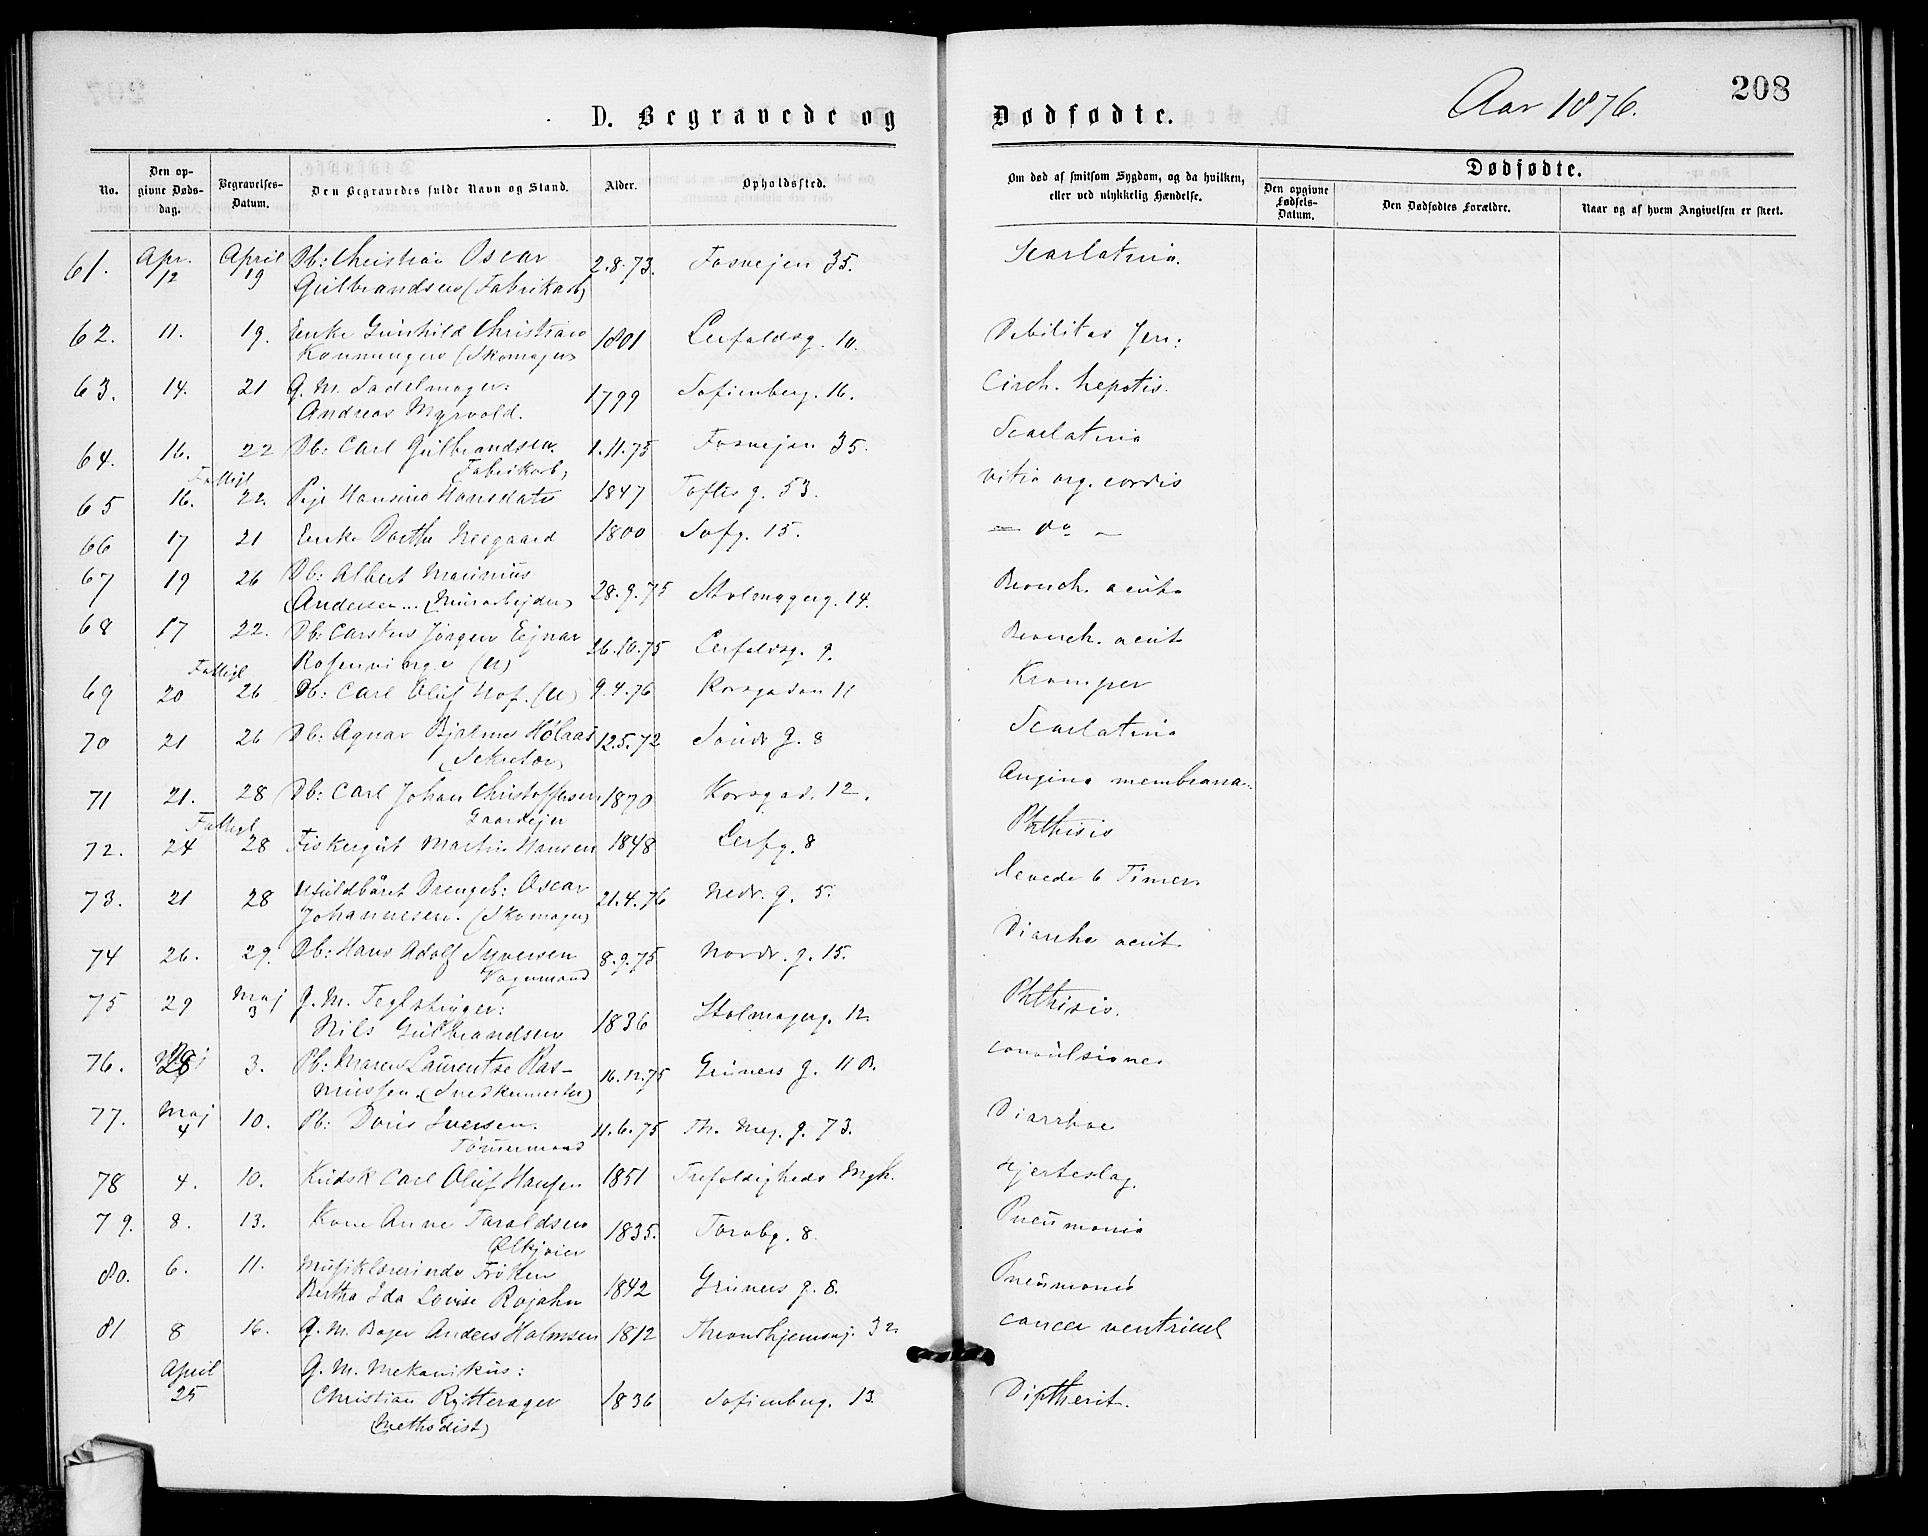 D. Begravede og Dødfødte. Aar 1876. 208
No. Den opgivne Dødsdag. Begravelses-Datum. Den Begravedes fulde Navn og Stand. Alder. Opholdssted. Om død af smitsom Sygdom, og da hvilken, eller ved ulykkelig Hændelse. Dødfødte. Den opgivne Fødsels-Datum. Den Dødfødtes Forældre. Naar og af hvem Angivelsen er skeet.
61. Apr. 12 April 19 Db: Christian Oscar 2.8.73. Fosvejen 35. Scarlatina.
Gulbrandsen (Fabrikarb)
62. 11. 19. Enke Gunhild Christiane 1801 Lerfaldsg. 10. Debilitas sen:
(Skomager)
63. 14. 21 G. M. Sadelmager: 1799 Sofienberg. 16. Cirrh. hepatis.
Andreas Myrvold.
64. 16. 22 Db: Carl Gulbrandsen 1.11.75 Fosvejen 35. Scarlatina
Fabrikarb,
Fattigl
65 16. 22. Pige Hansine Hansdatr 1847 Toftes g. 53. vitia org. cordis
66 17 21 Enke Dorthe Neegaard 1800 Sofg. 15. — do —
67 19 26 Db: Albert Marinius 28.9.75 Stolmagerg. 14. Bronch. acuta
Andersen... (Murarbejder)
68 17 22. Db: Carsten Jørgen Ejnar 26.10.75 Lerfaldsg. 9. Bronch. acut
Rosenvinge (U)
Fattigl
69 20 26 Db: Carl Oluf Hof. (U) 9.4.76 Korsgaden 11 Kramper
70 21 26 Db: Agnar Hjalmar Hølaas 12.5.72 Søndr g. 8 Scarlatina
(Sekretær)
71 21. 28 Db: Carl Johan Christoffersen 1870 Korsgad. 12. Angina membrana..
Gaardejer
Fattigl
72. 24 28 Fiskergut Martin Hansen 1848 Lerfg. 8 Phthisis
73. 21 28 Ufuldbåret Drengeb: Oscar 21.4.76 Nedr. g. 5. levede 6 Timer.
Johannesen. (Skomager)
74 26. 29. Db: Hans Adolf Syversen 8.9.75 Nordr. g. 15. Diarrhe acut
Vognmand
75 29 Maj 3 G. M. Teglstryger: 1836 Stolmagerg. 12 Phthisis.
Nils Gulbrandsen
76. 28 3. Pb: Maren Laurentse Ras- 16.12.75 Grüners g. 11 B. convulsiones
mussen. (Snedkermester)
77. Maj 4 10. Pb: Doris Iversen. 11.6.75 Th. Mey. g. 73. Diarrhoe
Tømmermand
78 4. 10. Kudsk Carl Oluf Hansen 1851 Trefoldigheds Mgh. Hjerteslag.
79. 8. 13. Kone Anne Taraldsen 1835. Torvbg. 8. Pneumonia
Ølkjører
80. 6. 11. Musiklærerinde Frøken
Bertha Ida Lovise Rojahn 1842 Grüners g. 8. Pneumonia
81 8 16. G. M. Bager Anders Holmsen 1812 Throndhjemsvj. 32 cancer ventricul
April G. M. Mekanikus:
25 Christian Rytterager 1836 Sofienberg. 13. Diptherit.
(Methodist)